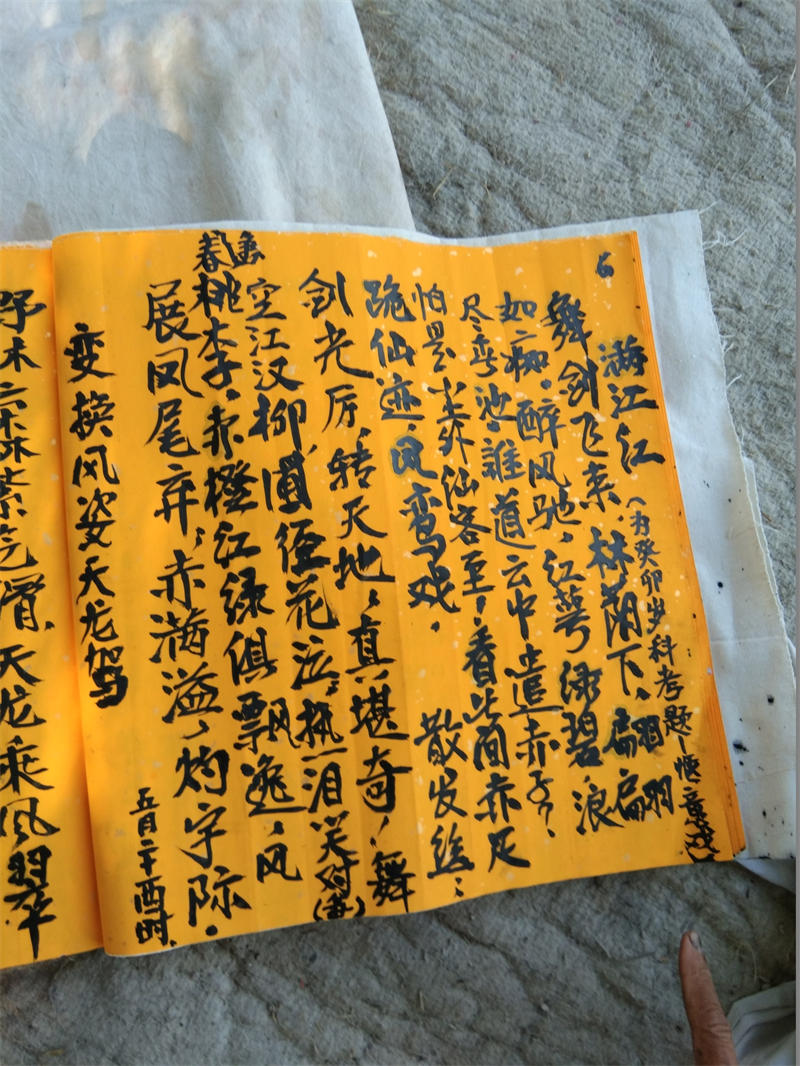 6
满江红(为癸卯岁科考题一
舞剑飞来,林荫下,翩翩
如二柳。醉风驰,红萼绿碧浪
尽弯池。谁道云中遣赤子?
怕是半外仙客至!看此间赤足
散发丝:
跪仙迹,凤鸾戏。
剑光厉,转天地,真堪奇!舞
空江汉柳,圃径花泣,执一泪笑对
春桃李,赤橙红绿俱飘逸,风
展凤尾弃,赤满溢,灼宇际。
五月二十酉时.
变换风姿天龙驾
野林 紫气滑,天龙乘风翠